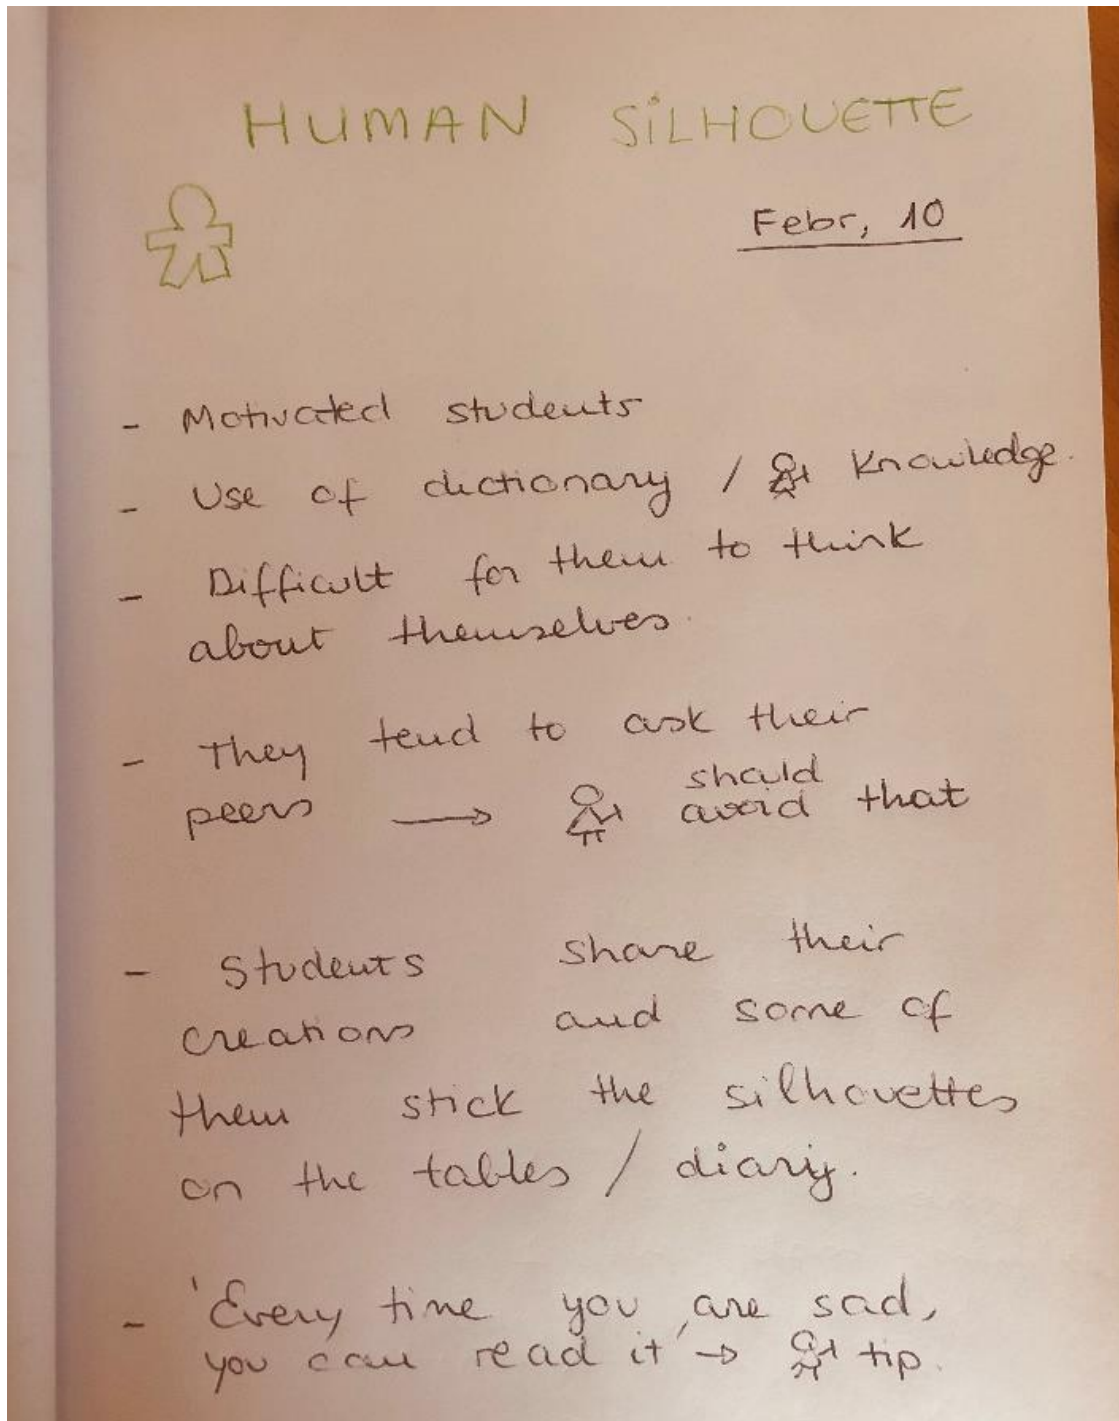 HUMAN SiLHOUETTE
Febr, 10
- Motivated students
- Use of dictionary / knowledge.
- Difficult for them to think
about themselves.
- They tend to ask their
peers → should avoid that
- Students share their
creations and some of
them stick the silhouettes
on the tables / diary.
- 'Every time you are sad,
you can read it' → tip.